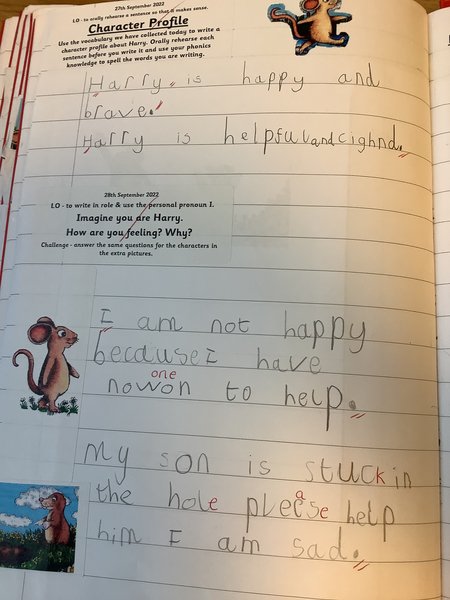 27th September 2022
LO - to orally rehearse a sentence so that it makes sense.
Character Profile
Use the vocabulary we have collected today to write a
character profile about Harry. Orally rehearse each
sentence before you write it and use your phonics
knowledge to spell the words you are writing.
Harry is happy and
brave.
Harry is helpful and cighnd.
28th September 2022
LO - to write in role & use the personal pronoun I.
Imagine you are Harry.
How are you feeling? Why?
Challenge - answer the same questions for the characters in
the extra pictures.
I am not happy
because I have
one
nowon to help.
My son is stuck in
the hole please help
him I am sad.